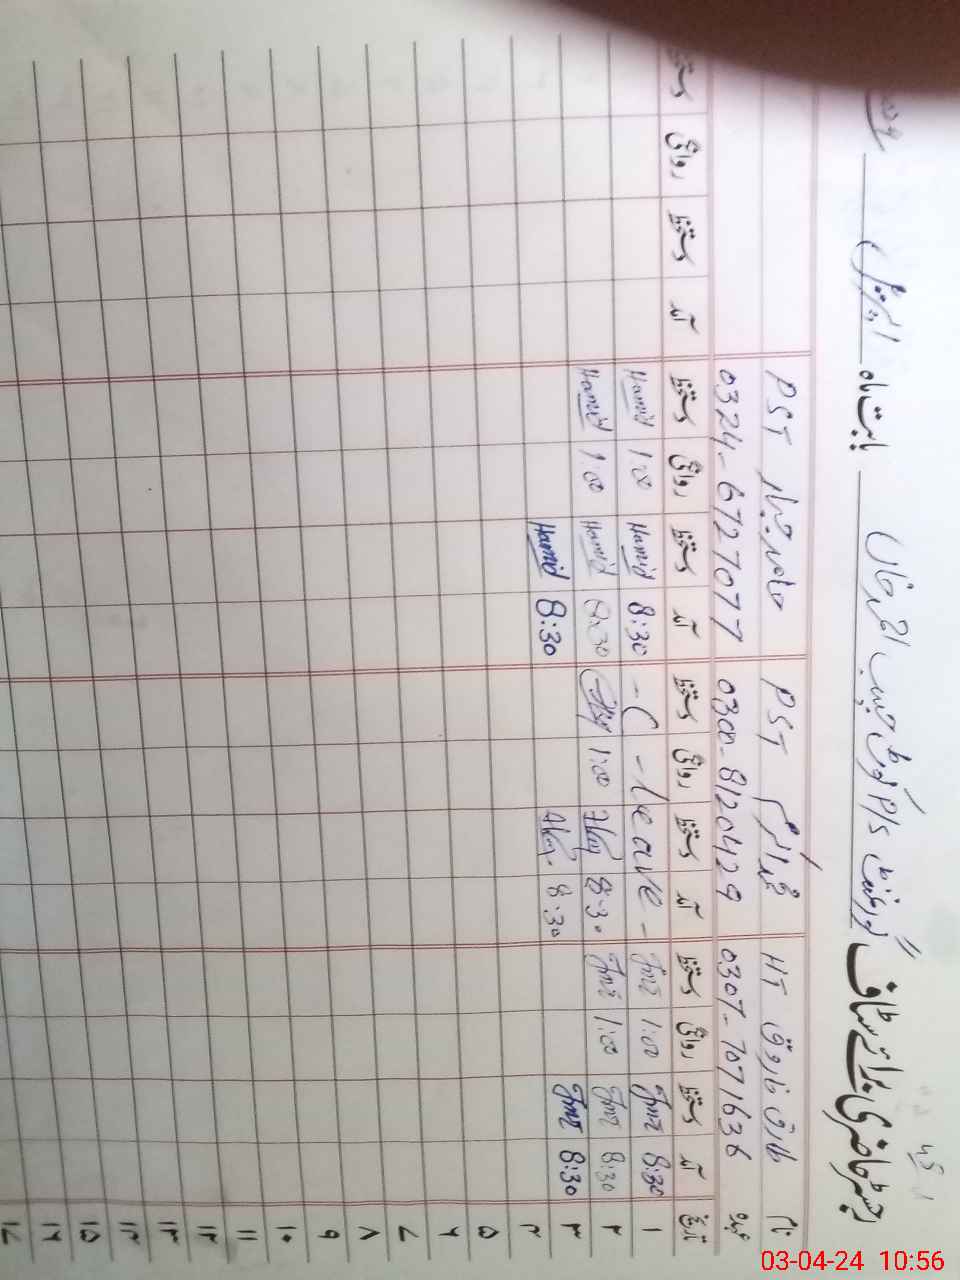 رجسٹر حاضری برائے سٹاف گورنمنٹ P/S کوٹل حبیب احمد خاں بابت ماہ اپریل
نام طارق فاروق HT محمد اکرم PST حامد جبار PST
عہدہ 0307-7071636 0300-8120429 0324-6727077
تاریخ آمد دستخط روانگی دستخط آمد دستخط روانگی دستخط آمد دستخط روانگی دستخط آمد دستخط روانگی دستخط
۱ 8:30 1:00 - C - leave - 8:30 Hamid 1:00 Hamid
۲ 8:30 1:00 8:30 1:00 8:30 Hamid 1:00 Hamid
۳ 8:30 8:30 8:30 Hamid
۴
۵
۶
۷
۸
۹
۱۰
۱۱
۱۲
۱۳
۱۴
۱۵
۱۶
۱۷
03-04-24 10:56